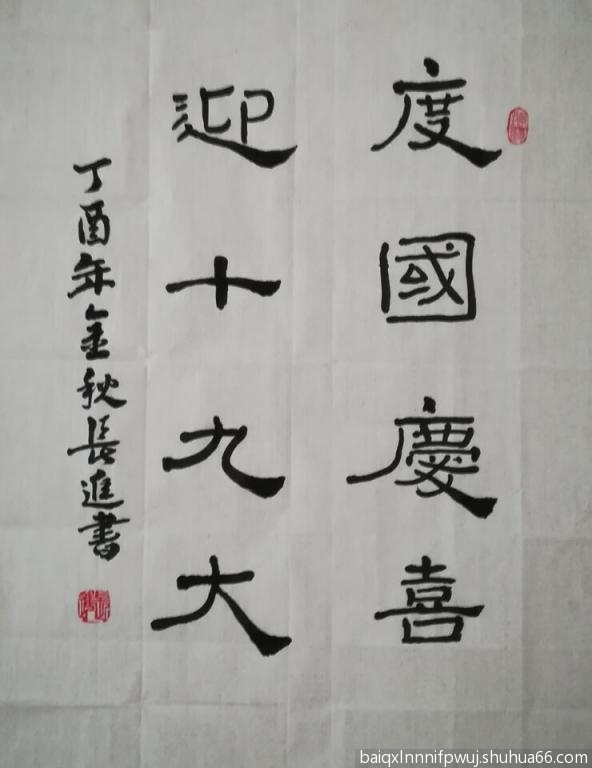 度國慶喜
迎十九大
丁酉年金秋長進書
baiqxlnnnifpwuj.shuhua66.com